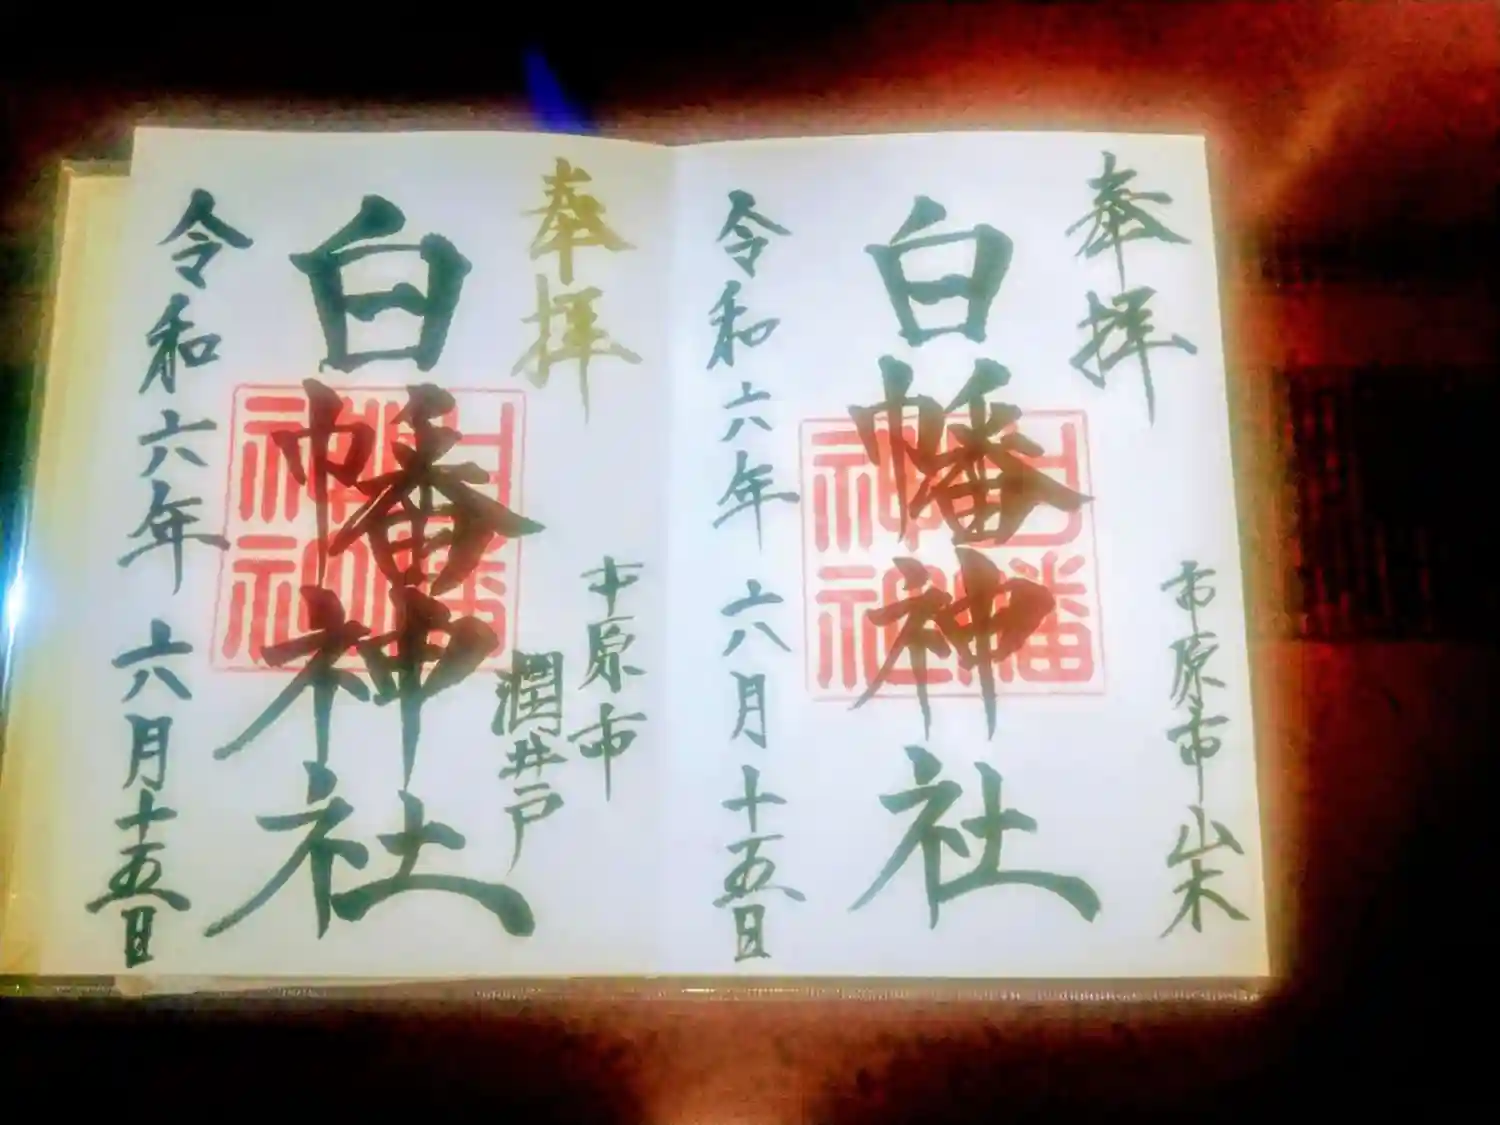 奉拝
市原市山木
白幡神社
白幡神社
令和六年六月十五日
奉拝
市原市
潤井戸
白幡神社
白幡神社
令和六年六月十五日